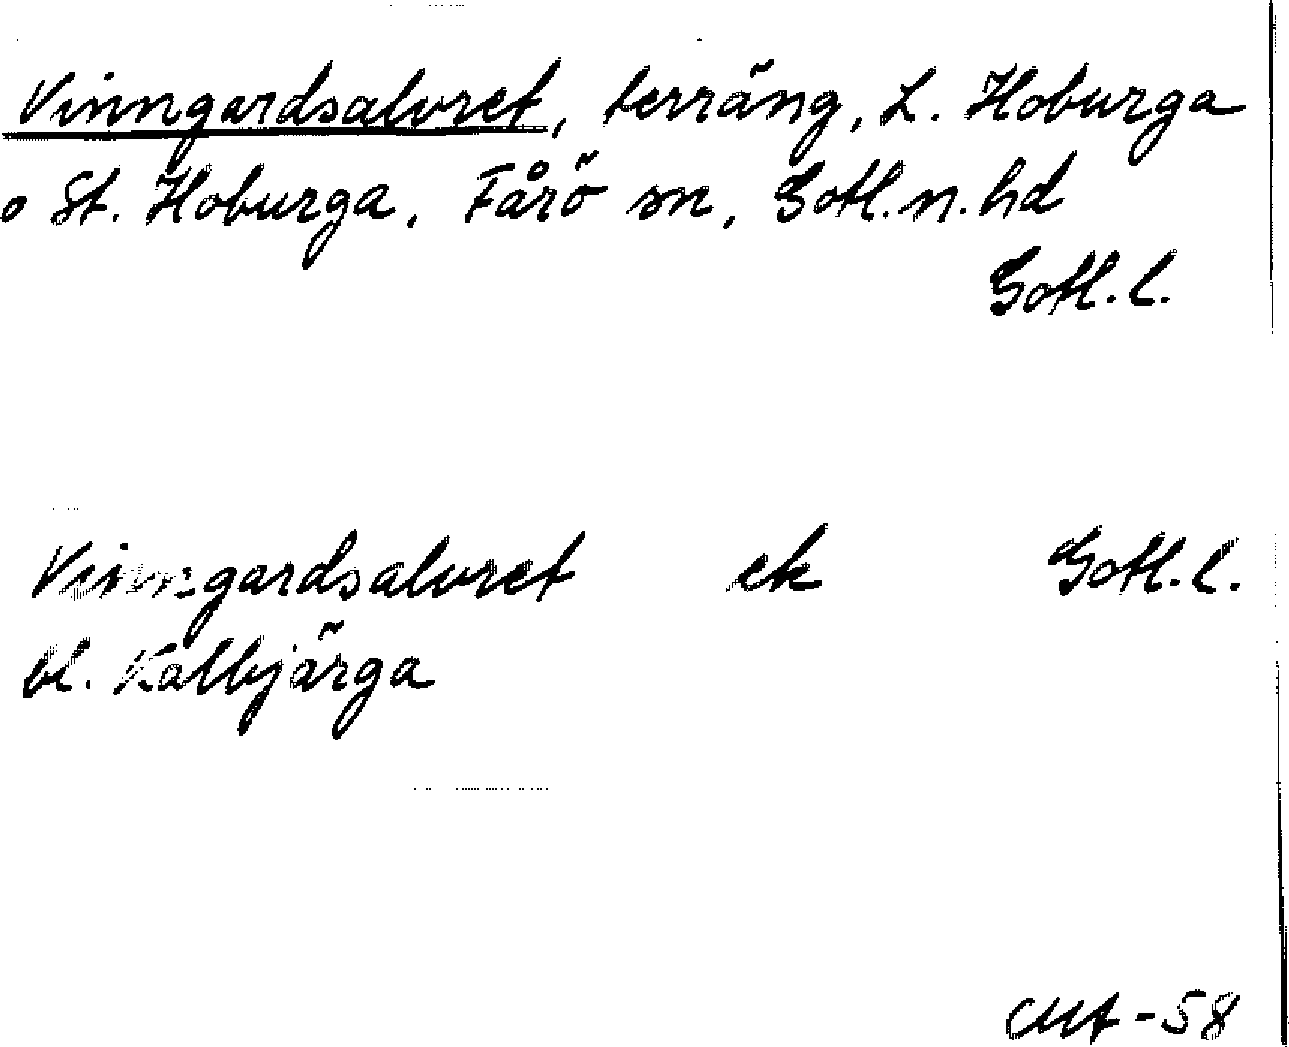 Vinngardsalvret, terräng, L. Hoburga
o St. Hoburga, Fårö sn, Gotl. n. hd
Gotl. l.
Vinngardsalvret ek Gotl. l.
bl. Kalbjärga
-58